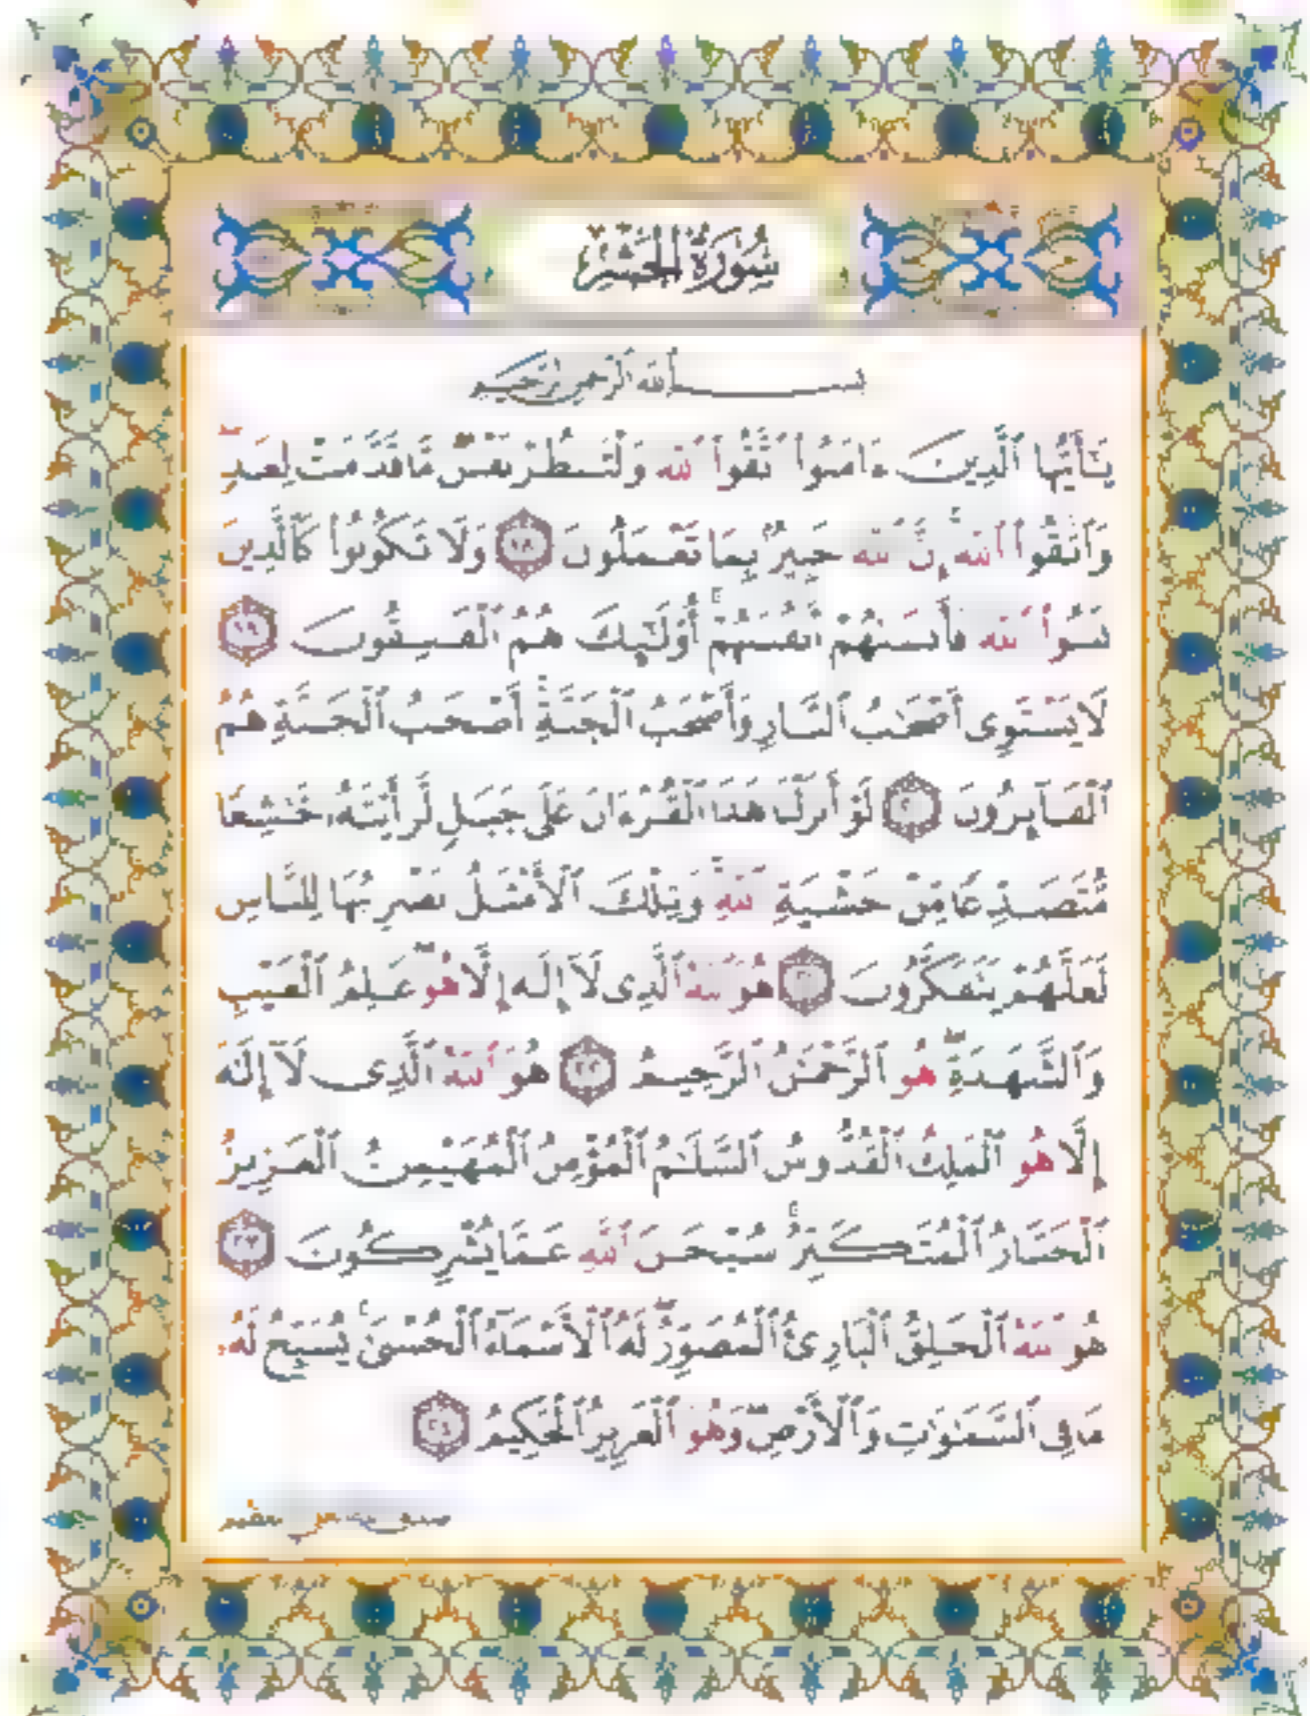 سُورَةُ الْحَشْرِ
بِسْمِ اللَّهِ الرَّحْمَٰنِ الرَّحِيمِ
يَٰٓأَيُّهَا ٱلَّذِينَ ءَامَنُوا۟ ٱتَّقُوا۟ ٱللَّهَ وَلْتَنظُرْ نَفْسٌ مَّا قَدَّمَتْ لِغَدٍ
وَٱتَّقُوا۟ ٱللَّهَ إِنَّ ٱللَّهَ خَبِيرٌۢ بِمَا تَعْمَلُونَ ١٨ وَلَا تَكُونُوا۟ كَٱلَّذِينَ
نَسُوا۟ ٱللَّهَ فَأَنسَىٰهُمْ أَنفُسَهُمْ أُو۟لَٰٓئِكَ هُمُ ٱلْفَٰسِقُونَ ١٩
لَا يَسْتَوِىٓ أَصْحَٰبُ ٱلنَّارِ وَأَصْحَٰبُ ٱلْجَنَّةِ أَصْحَٰبُ ٱلْجَنَّةِ هُمُ
ٱلْفَآئِزُونَ ٢٠ لَوْ أَنزَلْنَا هَٰذَا ٱلْقُرْءَانَ عَلَىٰ جَبَلٍ لَّرَأَيْتَهُۥ خَٰشِعًا
مُّتَصَدِّعًا مِّنْ خَشْيَةِ ٱللَّهِ وَتِلْكَ ٱلْأَمْثَٰلُ نَضْرِبُهَا لِلنَّاسِ
لَعَلَّهُمْ يَتَفَكَّرُونَ ٢١ هُوَ ٱللَّهُ ٱلَّذِى لَآ إِلَٰهَ إِلَّا هُوَ عَٰلِمُ ٱلْغَيْبِ
وَٱلشَّهَٰدَةِ هُوَ ٱلرَّحْمَٰنُ ٱلرَّحِيمُ ٢٢ هُوَ ٱللَّهُ ٱلَّذِى لَآ إِلَٰهَ
إِلَّا هُوَ ٱلْمَلِكُ ٱلْقُدُّوسُ ٱلسَّلَٰمُ ٱلْمُؤْمِنُ ٱلْمُهَيْمِنُ ٱلْعَزِيزُ
ٱلْجَبَّارُ ٱلْمُتَكَبِّرُ سُبْحَٰنَ ٱللَّهِ عَمَّا يُشْرِكُونَ ٢٣
هُوَ ٱللَّهُ ٱلْخَٰلِقُ ٱلْبَارِئُ ٱلْمُصَوِّرُ لَهُ ٱلْأَسْمَآءُ ٱلْحُسْنَىٰ يُسَبِّحُ لَهُۥ
مَا فِى ٱلسَّمَٰوَٰتِ وَٱلْأَرْضِ وَهُوَ ٱلْعَزِيزُ ٱلْحَكِيمُ ٢٤